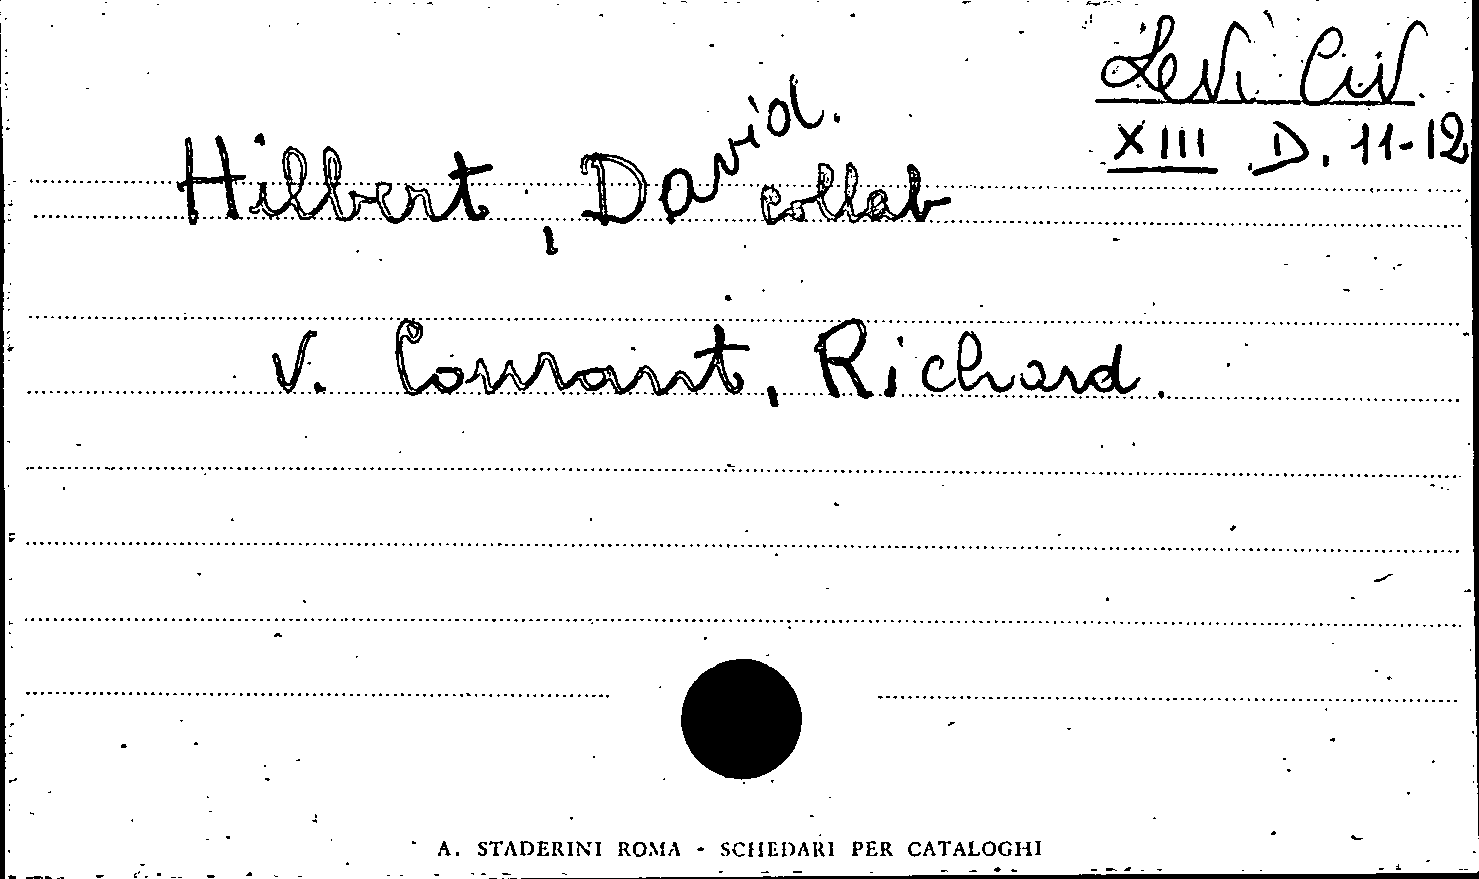 Levi Civ.
XIII D. 11-12
Hilbert, David. collab
v. Courant, Richard.
A. STADERINI ROMA - SCHEDARI PER CATALOGHI